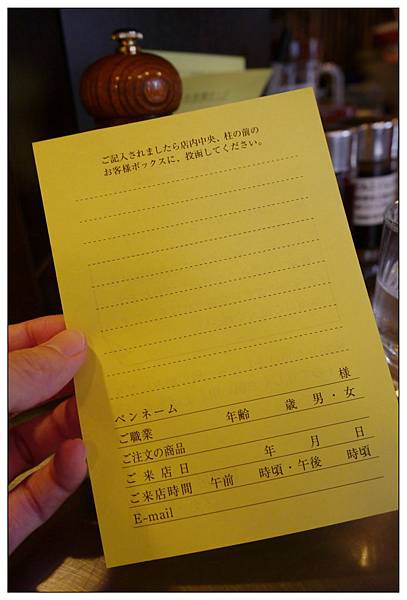 ご記入されましたら店内中央、柱の前の
お客様ボックスに、投函してください。
様
ペンネーム 年齢 歳 男・女
ご職業
ご注文の商品
ご来店日 年 月 日
ご来店時間 午前 時頃・午後 時頃
E-mail